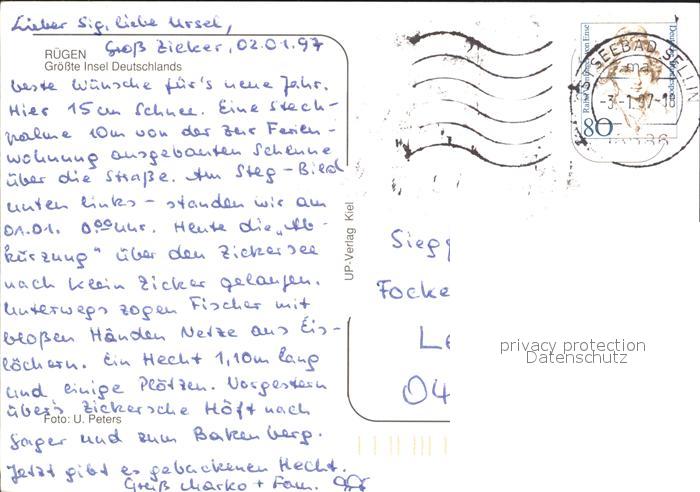 Lieber Sig, liebe Ursel,
RÜGEN
Größte Insel Deutschlands
Groß Zicker, 02.01.97
beste Wünsche für's neue Jahr.
Hier 15cm Schnee. Eine Stech-
palme 10m von der zur Ferien-
wohnung ausgebauten Scheune
über die Straße. Am Steg - Bild
unten links - standen wir am
01.01. 0.00 Uhr. Heute die „Ab-
kürzung" über den Zickersee
nach Klein Zicker gelaufen.
Unterwegs zogen Fischer mit
bloßen Händen Netze aus Eis-
löchern. Ein Hecht 1,10m lang
und einige Plötzen. Vorgestern
über's Zickersche Höft nach
Foto: U. Peters
Gager und zum Bakenberg.
Jetzt gibt es gebackenen Hecht.
Gruß Marko + Fam.
UP-Verlag Kiel
OSTSEEBAD SELLIN
-3.-1.97-18
80
Siegg
Focke
Le
04
privacy protection
Datenschutz